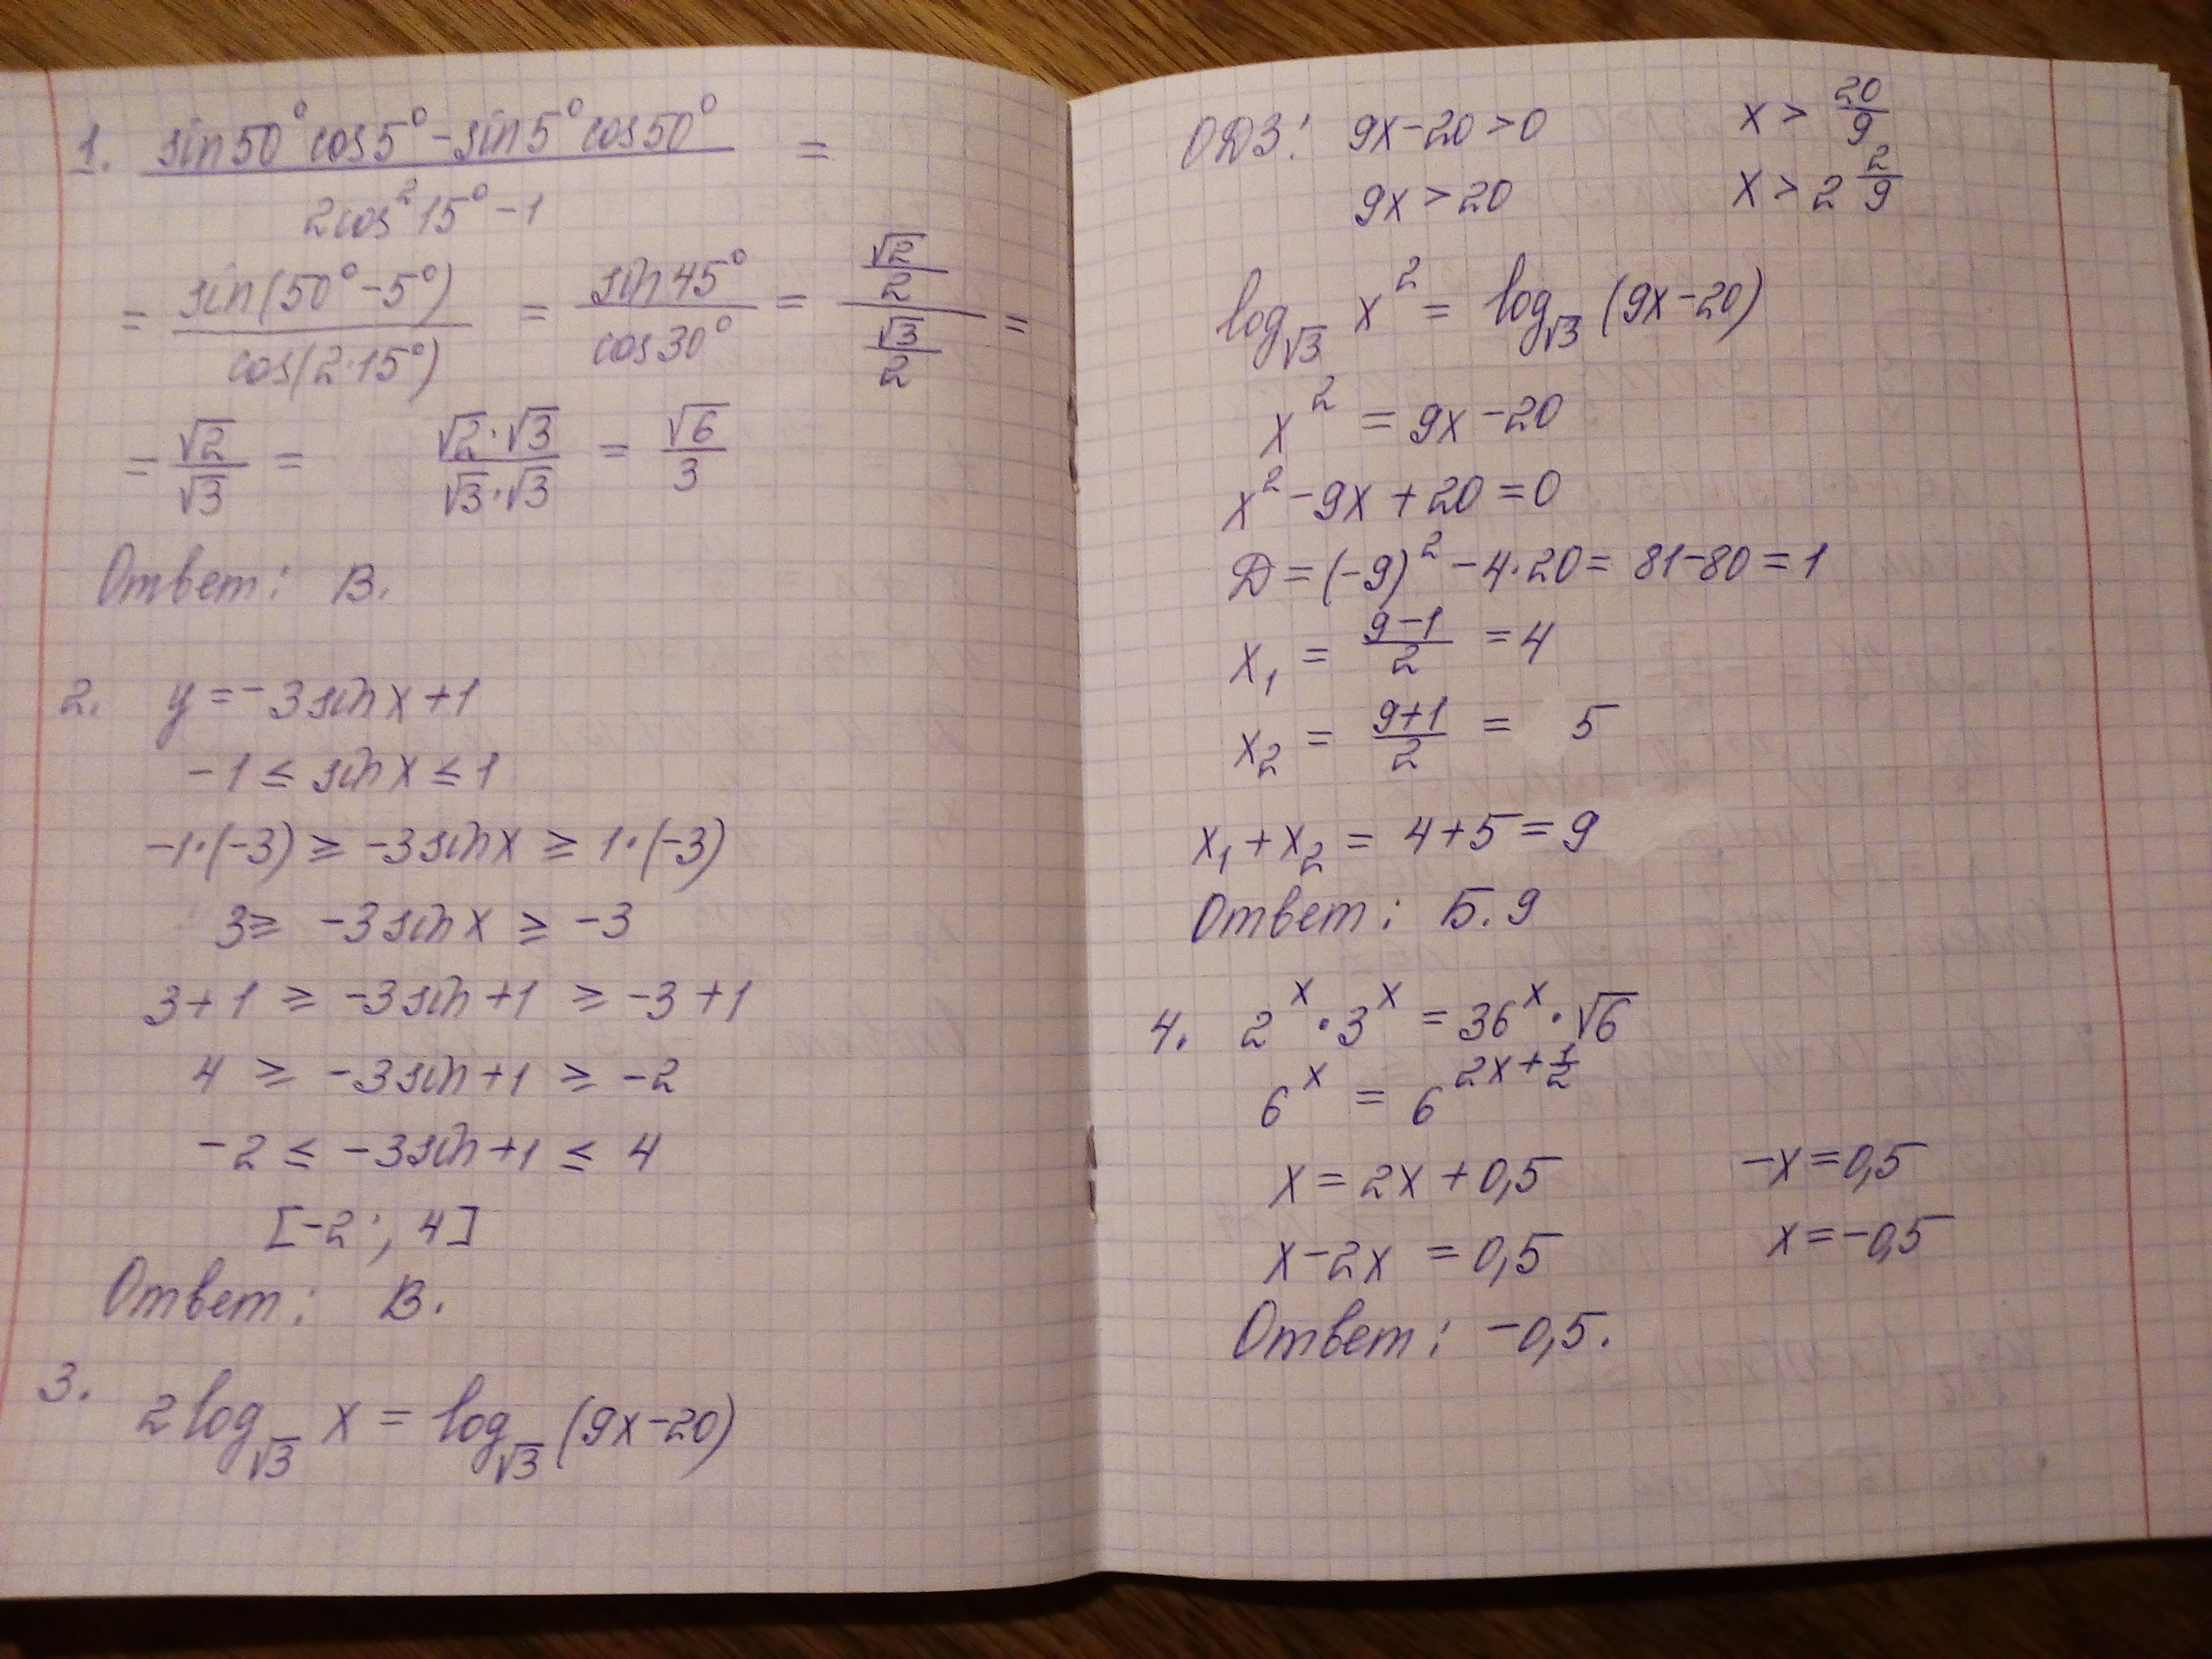 1. (sin50°cos5° - sin5°cos50°)/(2cos²15° - 1) =
= sin(50° - 5°)/cos(2·15°) = sin45°/cos30° = (√2/2)/(√3/2) =
= √2/√3 = (√2·√3)/(√3·√3) = √6/3
Ответ: В.
2. y = -3sinx + 1
-1 ≤ sinx ≤ 1
-1·(-3) ≥ -3sinx ≥ 1·(-3)
3 ≥ -3sinx ≥ -3
3+1 ≥ -3sin+1 ≥ -3+1
4 ≥ -3sin+1 ≥ -2
-2 ≤ -3sin+1 ≤ 4
[-2; 4]
Ответ: В.
3. 2log_√3 x = log_√3 (9x-20)
ОДЗ: 9x-20>0 x > 20/9
9x>20 x > 2 2/9
log_√3 x² = log_√3 (9x-20)
x² = 9x-20
x² - 9x + 20 = 0
Д = (-9)² - 4·20 = 81-80 = 1
x₁ = (9-1)/2 = 4
x₂ = (9+1)/2 = 5
x₁ + x₂ = 4+5 = 9
Ответ: Б. 9
4. 2^x · 3^x = 36^x · √6
6^x = 6^(2x + 1/2)
x = 2x + 0,5 -x = 0,5
x - 2x = 0,5 x = -0,5
Ответ: -0,5.